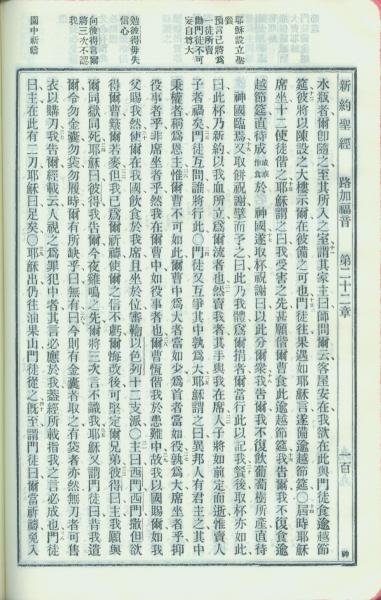 新約聖經 路加福音 第二十二章 一百
水瓶者爾卽隨之至其所入之室謂其家主曰師問爾云客屋安在我欲在此與門徒食逾越節
筵彼將以陳設之大樓示爾在彼備之可也門徒往果遇如耶穌言遂備逾越節筵〇屆時耶穌
席坐十二使徒偕之耶穌謂之曰我受害之先甚願偕爾曹食此逾越節筵我告爾我不復食逾
越節筵直待成於 神國遂取杯祝謝曰以此分爾衆我告爾我不復飲葡萄樹所產直待
神國臨焉又取餅祝謝擘而予之曰此乃我體爲爾捐者爾當行此以記我餐後取杯亦如此
曰此杯乃新約以我血所立爲爾流者也然賣我者其手與我在席人子將如前定而逝惟賣人
子者禍矣門徒互問誰將行此〇門徒又互爭其中孰爲大耶穌謂之曰異邦人有君主之其中
秉權者稱爲恩主惟爾曹不可如此爾曹中爲大者當如少爲首者當如役孰爲大席坐者乎抑
役事者乎非席坐者乎然我在爾曹中如役事者也爾曹恆偕我於患難中故我以國賜爾如我
父賜我然使爾在我國飲食於我席且坐於位審鞫以色列十二支派〇主曰西門西門撒但欲
得爾曹簸爾若麥但我已爲爾祈禱使爾之信不虧爾悔改後可堅定爾兄弟彼得曰主我願與
爾同獄同死耶穌曰彼得我告爾今夜雞鳴之先爾將三次言不識我耶穌又謂門徒曰昔我遣
爾令勿金囊勿袋勿履時爾有所缺乎曰無有曰今則有金囊者取之有袋者亦然無刀者可售
衣以購刀我告爾經載云人視之爲罪犯中者其言必應於我蓋經所載指我之言必成也門徒
曰主在此有二刀耶穌曰足矣〇耶穌出仍往油果山門徒從之旣至謂門徒曰爾當祈禱免入
耶穌設立聖
餐
預言己將爲
一徒所賣
勸門徒不可
妄自尊大
勉彼得毋失
信心
向彼得言爾
將三次不認
我
園中祈禱